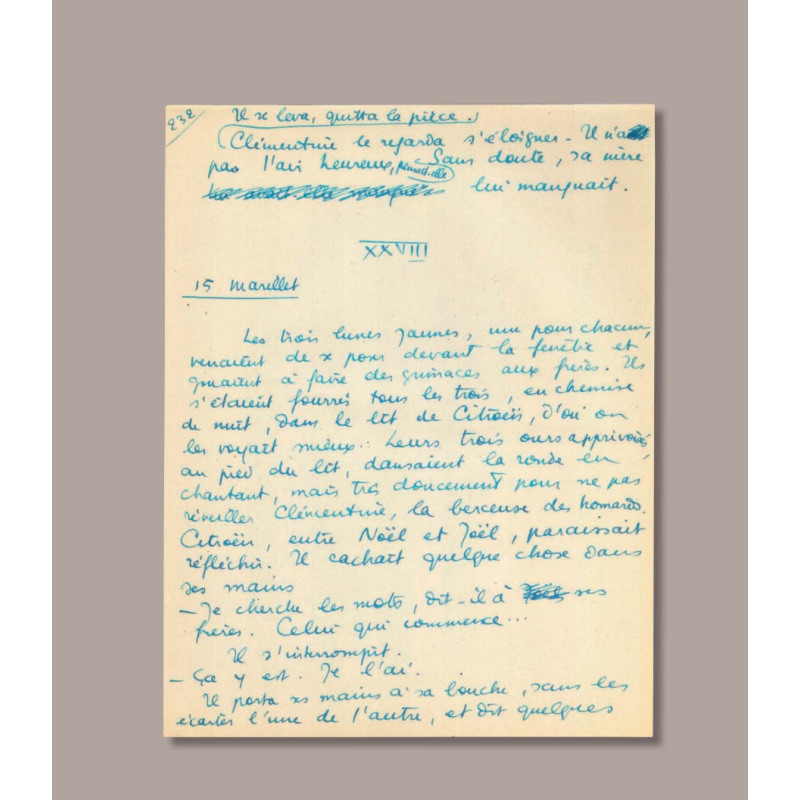 232
Il se leva, quitta la pièce.
Clémentine le regarda s'éloigner. Il n'a
pas l'air heureux, pensait-elle Sans doute, sa mère
lui manquait.
XXVIII
15 marillet
Les trois lunes jaunes, une pour chacun,
venaient de se poser devant la fenêtre et
jouaient à faire des grimaces aux frères. Ils
s'étaient fourrés tous les trois, en chemise
de nuit, dans le lit de Citroën, d'où on
les voyait mieux. Leurs trois ours apprivoisés,
au pied du lit, dansaient la ronde en
chantant, mais très doucement pour ne pas
réveiller Clémentine, la berceuse des homards.
Citroën, entre Noël et Joël, paraissait
réfléchir. Il cachait quelque chose dans
ses mains
– Je cherche les mots, dit-il à ses
frères. Celui qui commence...
Il s'interrompit.
– Ça y est. Je l'ai.
Il porta ses mains à sa bouche, sans les
écarter l'une de l'autre, et dit quelques